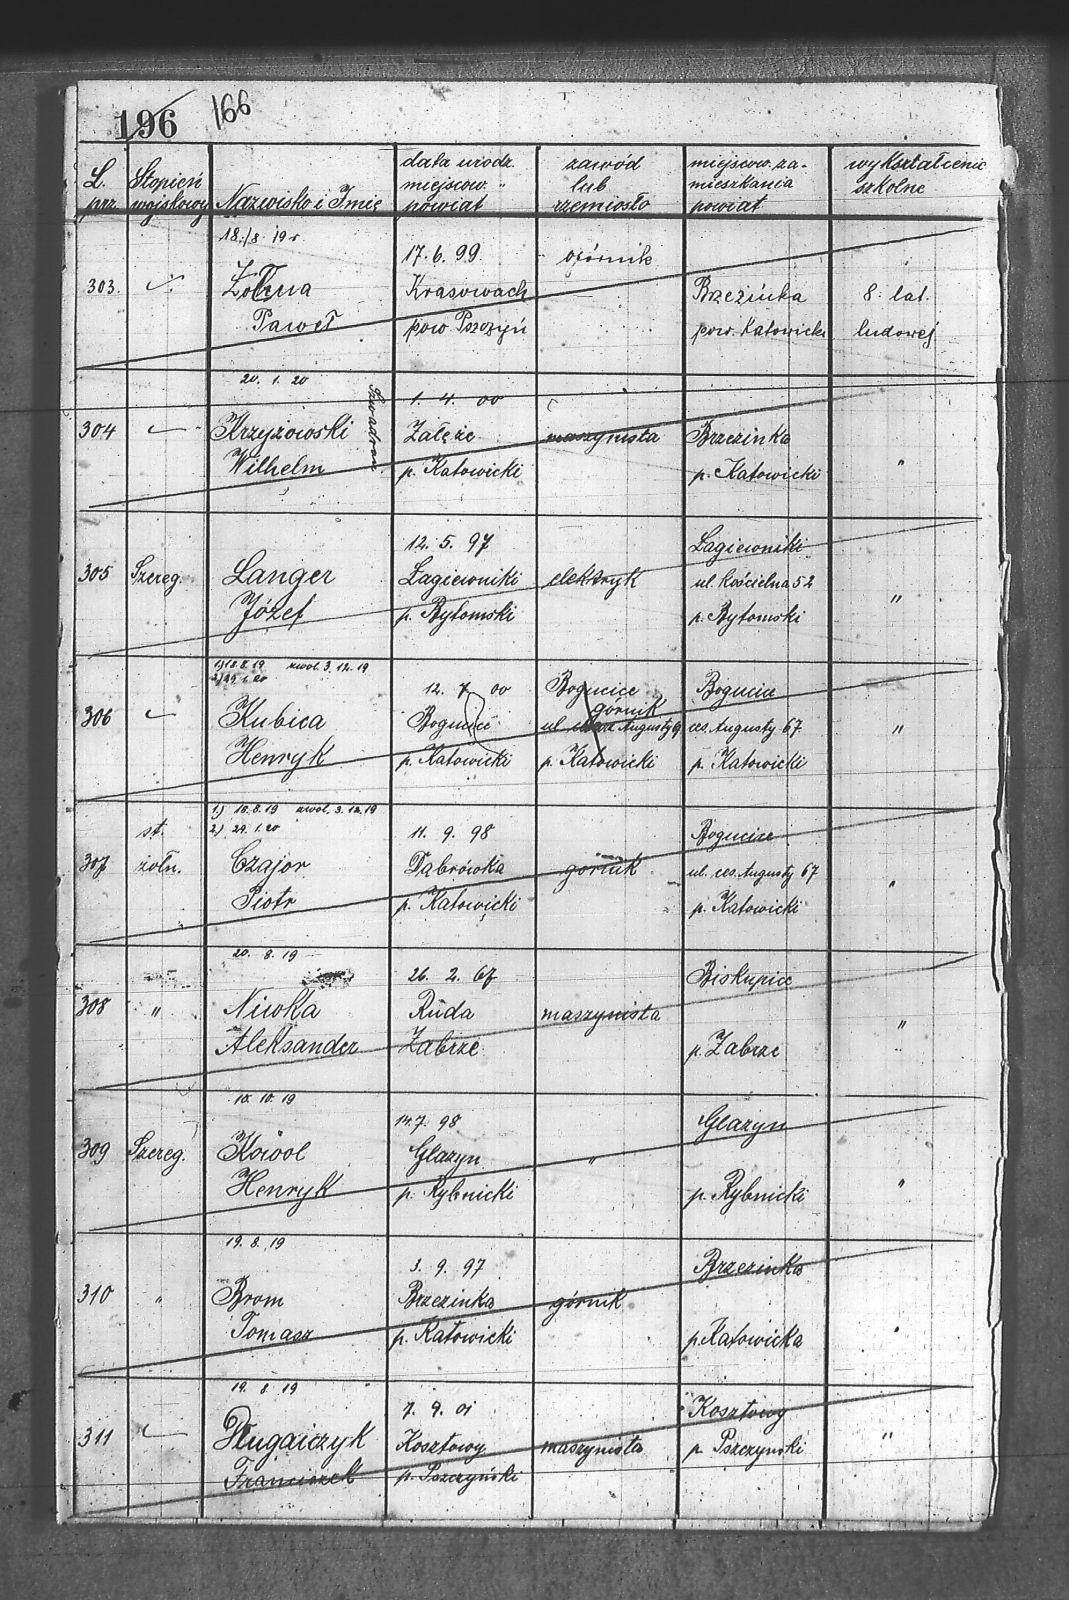 196 166
L. prz.
Stopień wojskowy
Nazwisko i Imię
data urodz. miejscow. " powiat
zawód lub rzemiosło
miejscow. zamieszkania powiat
wykształcenie szkolne
18./8 19 r
17. 6. 99 górnik
303. Paweł
Krasowach Brzezinka 8. lat.
pow Pszczyń pow. Katowicki ludowej
20. 1. 20
Szwadron
1. 4. 00
304 Krzyżowski Załęże maszynista Brzezinka
Wilhelm p. Katowicki p. Katowicki "
12. 5. 97 Łagiewniki
305 Szereg. Langer Łagiewniki elektryk ul. Kościelna 52
Józef p. Bytomski p. Bytomski "
1) 18.8.19 zwol. 3.12.19
2) 29.1.20
12. 7 00 Bogucice Bogucice
górnik
306 Kubica Bogucice ul. Augusty 9 ces. Augusty 67 "
Henryk p. Katowicki p. Katowicki p. Katowicki
1) 18.8.19 zwol. 3.12.19
2) 29.1.20
st. 11. 9. 98 Bogucice
307 żołn. Czajor Dąbrówka górnik ul. ces. Augusty 67 "
Piotr p. Katowicki p. Katowicki
20. 8. 19
26. 2. 67 Biskupice
308 " Niwka Ruda maszynista "
Aleksander Zabrze p. Zabrze
10. 10. 19
14.7. 98 Glazyn
309 Szereg. Kowol Glazyn "
Henryk p. Rybnicki p. Rybnicki "
19. 8. 19
3. 9. 97 Brzezinka
310 " Brom Brzezinka górnik
Tomasz p. Katowicki p. Katowicka "
19. 8 19
7. 9. 01 Kosztowy
311 Długajczyk Kosztowy maszynista p. Pszczyński "
Franciszek p. Pszczyński